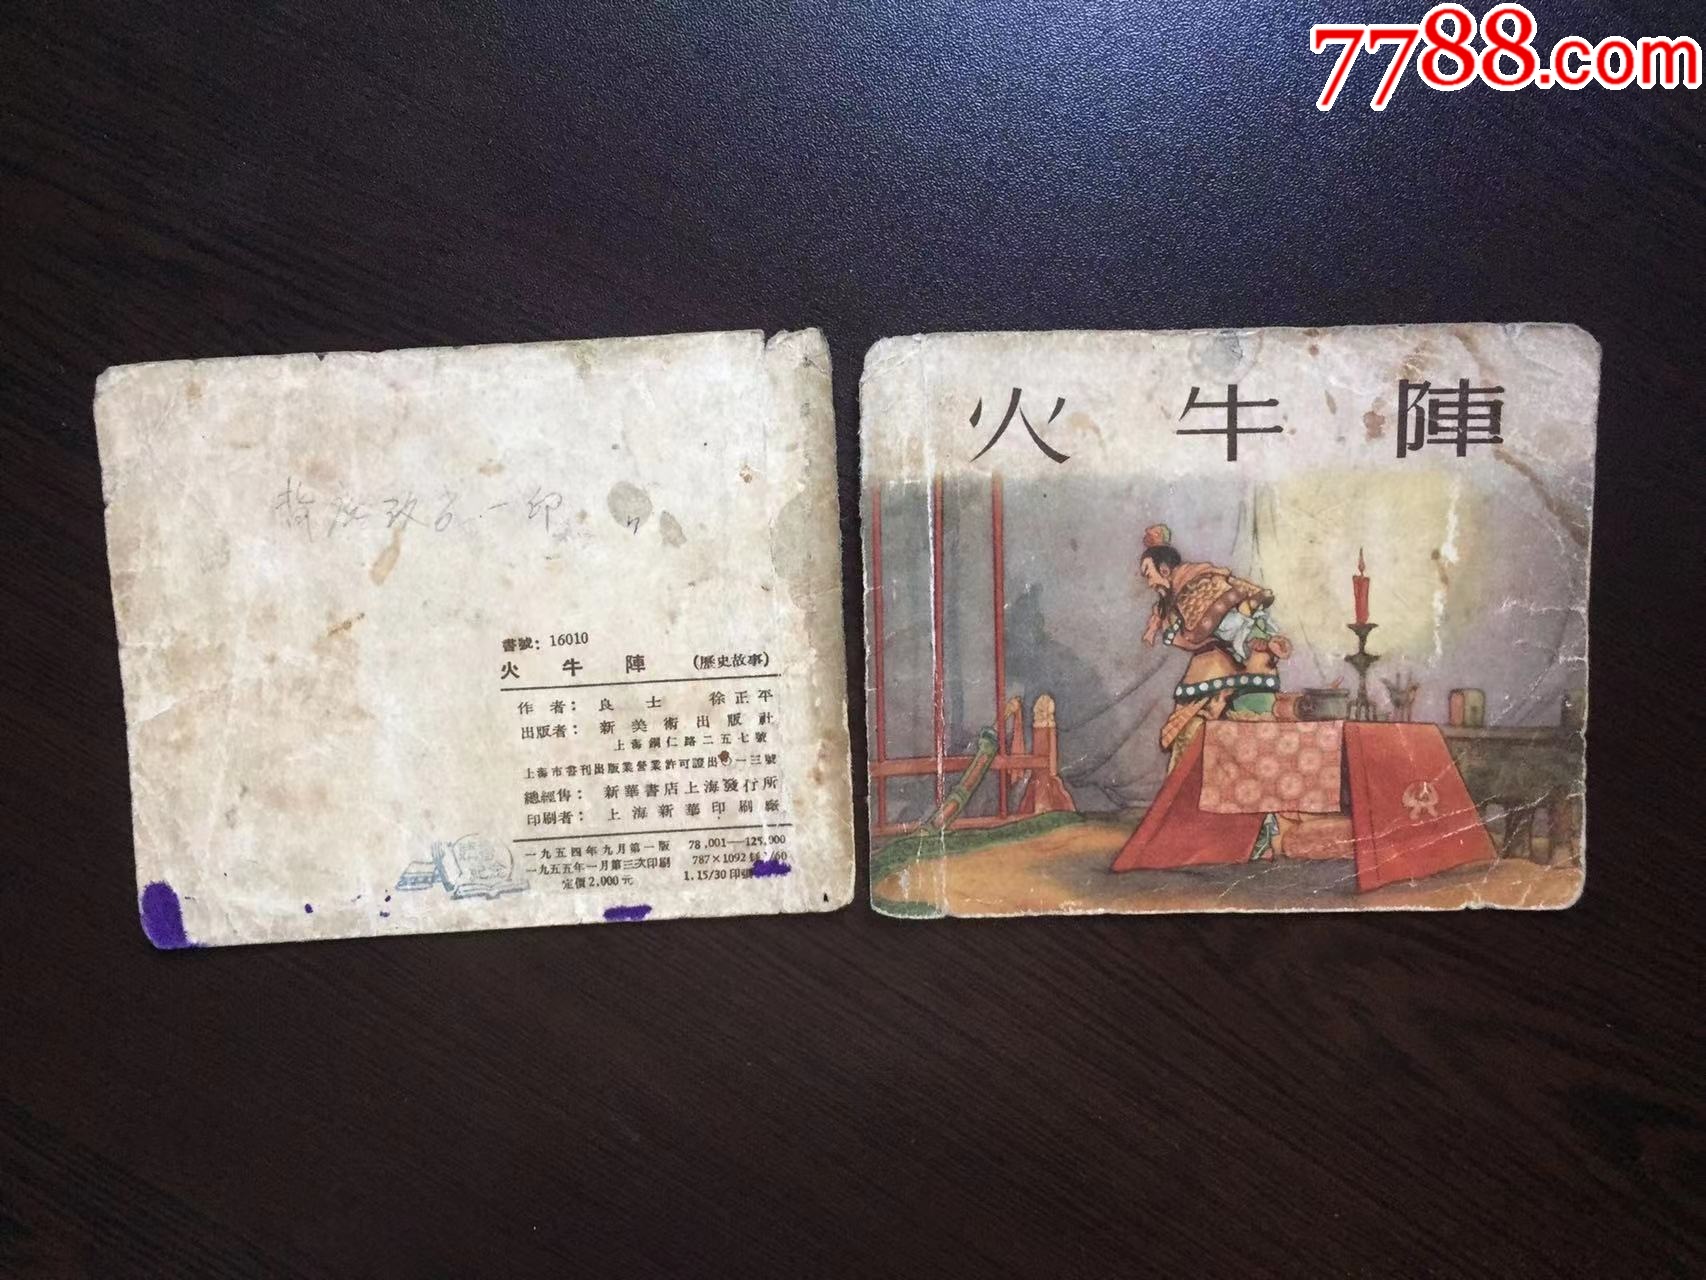 7788.com
火牛陣
一印
書號：16010
火牛陣 (歷史故事)
作者：良士 徐正平
出版者：新美術出版社
上海銅仁路二五七號
上海市書刊出版業營業許可證出〇一三號
總經售：新華書店上海發行所
印刷者：上海新華印刷廠
一九五四年九月第一版 78,001—125,000
一九五五年一月第三次印刷 787×1092 /60
定價2,000元 1.15/30印張